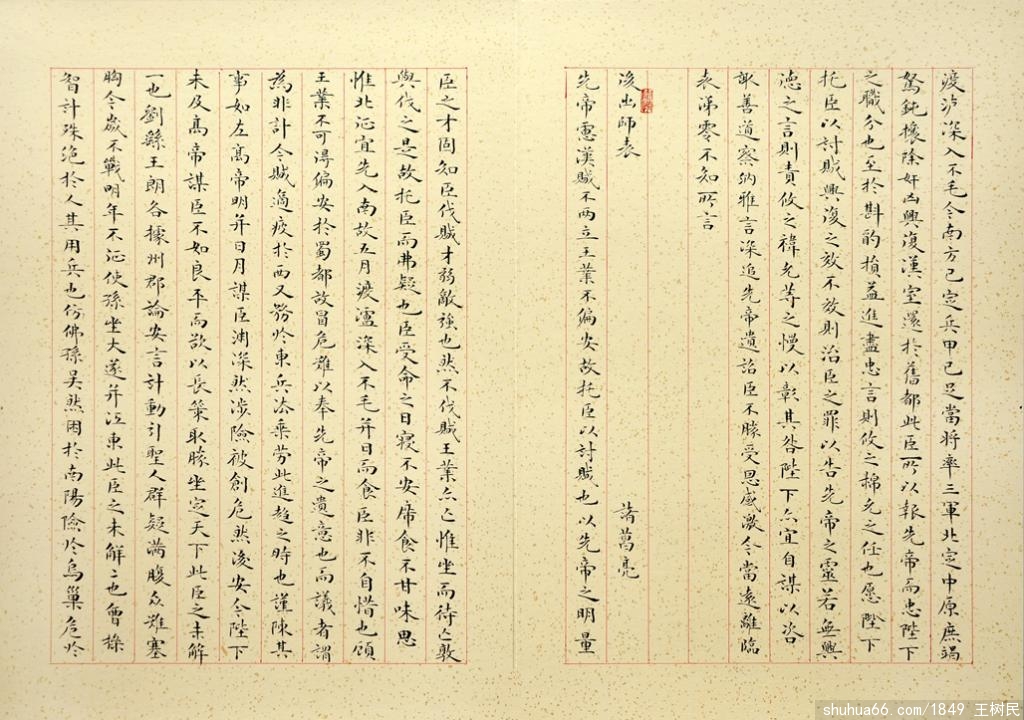 渡泸深入不毛今南方已定兵甲已足當将率三軍北定中原庶竭
駑鈍攘除奸凶興復漢室還於舊都此臣所以報先帝而忠陛下
之職分也至於斟酌損益進盡忠言則攸之褘允之任也愿陛下
托臣以討賊興復之效不效則治臣之罪以告先帝之靈若無興
德之言則責攸之褘允等之慢以彰其咎陛下亦宜自謀以咨
諏善道察纳雅言深追先帝遺詔臣不勝受恩感激今當遠離臨
表涕零不知所言
後出師表 諸葛亮
先帝慮漢贼不两立王業不偏安故托臣以討賊也以先帝之明量
臣之才固知臣伐賊才弱敵強也然不伐賊王業亦亡惟坐而待亡孰
與伐之是故托臣而弗疑也臣受命之日寝不安席食不甘味思
惟北征宜先入南故五月渡瀘深入不毛并日而食臣非不自惜也顧
王業不可得偏安於蜀都故冒危難以奉先帝之遺意也而議者謂
為非計今賊適疲於西又務於東兵法乘劳此進趋之時也謹陳其
事如左高帝明并日月謀臣渊深然涉險被創危然後安今陛下
未及高帝謀臣不如良平而欲以長策取勝坐定天下此臣之未解
一也劉繇王朗各據州郡論安言計動引聖人群疑满腹众難塞
胸今歲不戰明年不征使孫坐大遂并江東此臣之未解二也曹操
智計殊絶於人其用兵也仿佛孫吴然困於南陽險於烏巢危於
shuhua66.com/1849 王树民